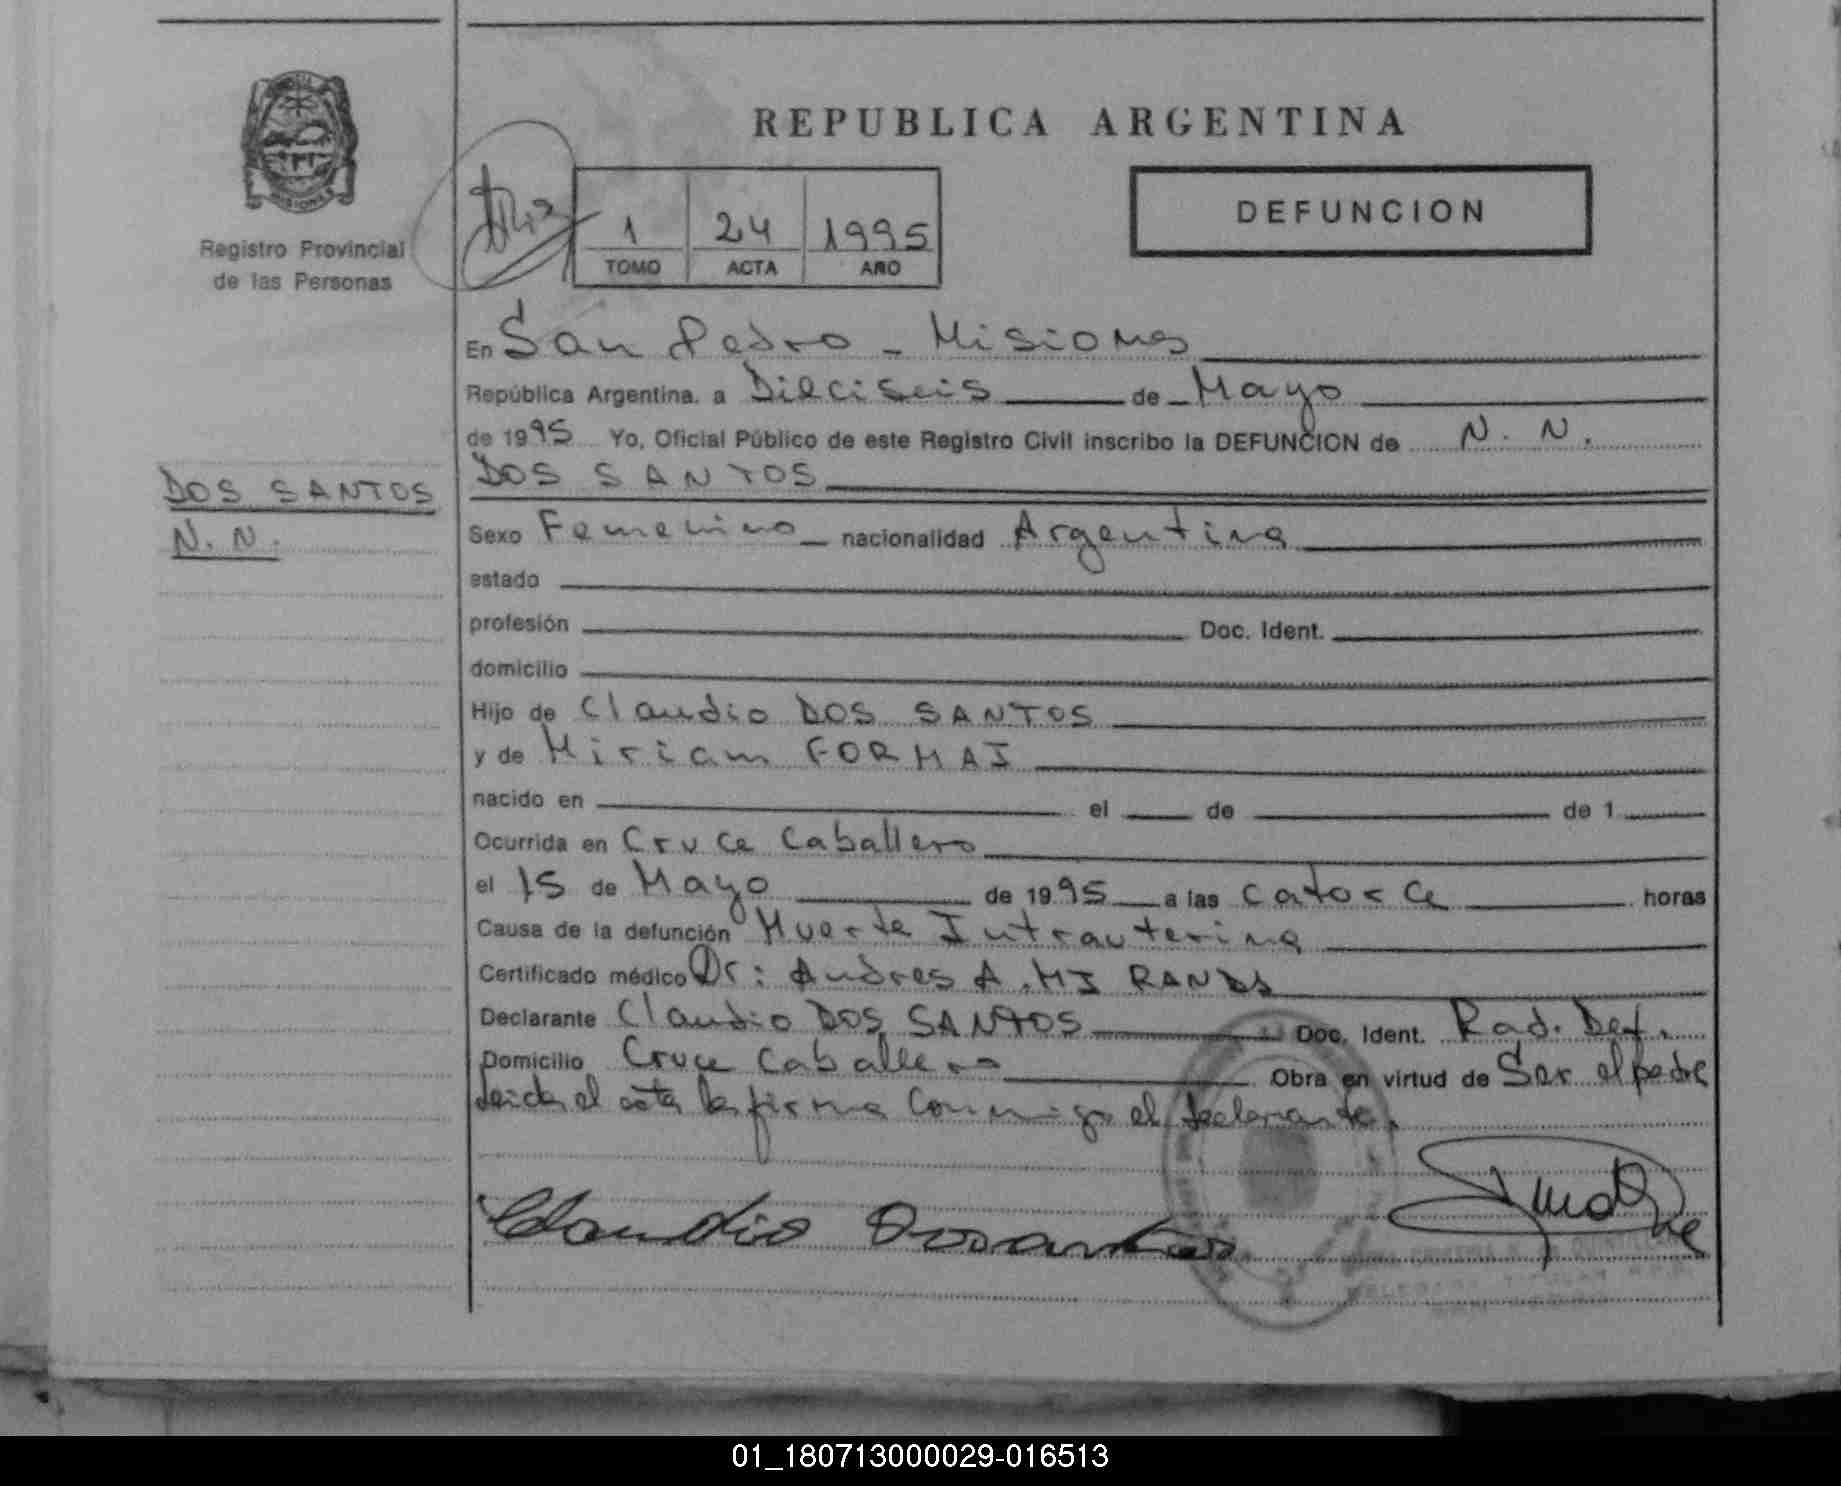 REPUBLICA ARGENTINA
Registro Provincial
de las Personas
1 24 1995
TOMO ACTA AÑO
DEFUNCION
En San Pedro - Misiones
República Argentina, a Dieciseis de Mayo
de 1995 Yo, Oficial Público de este Registro Civil inscribo la DEFUNCION de N. N.
DOS SANTOS
DOS SANTOS
N. N.
Sexo Femenino nacionalidad Argentina
estado
profesión Doc. Ident.
domicilio
Hijo de Claudio DOS SANTOS
y de Miriam FORMAI
nacido en el de de 1
Ocurrida en Cruce Caballero
el 15 de Mayo de 1995 a las Catorce horas
Causa de la defunción Muerte Intrauterina
Certificado médico Dr: Andres A. MIRANDA
Declarante Claudio DOS SANTOS Doc. Ident. Rad. Def.
Domicilio Cruce Caballero Obra en virtud de Ser el padre
Leida el acta la firma Conmigo el declarante.
Claudio Dossantos
01_180713000029-016513